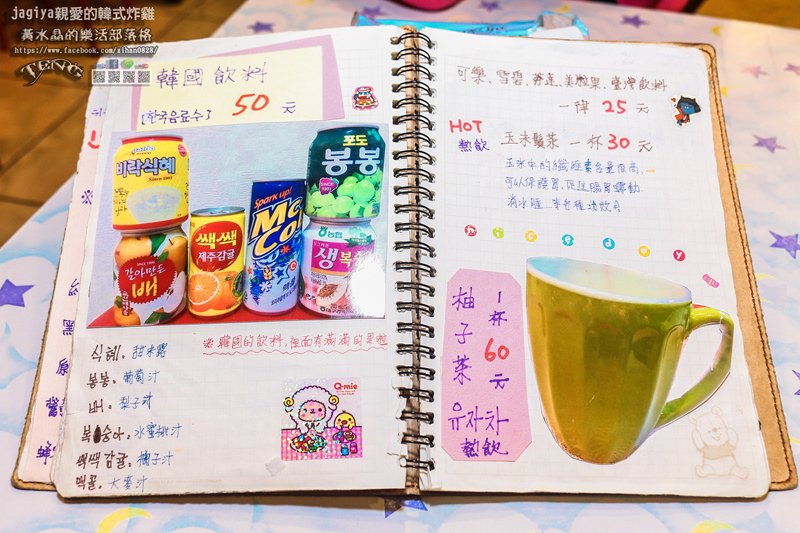 jagiya親愛的韓式炸雞
黃水晶的樂活部落格
https://www.facebook.com/zihan0828/
TENG
韓國飲料
[한국음료수] 50 元
비락식혜
Since 1981
포도
봉봉
SINCE 1981
갈아만든
배
쌕쌕
제주감귤
Spark up!
McCol
농협
생
※韓國的飲料,裡面有滿滿的果粒
식혜. 甜米露
봉봉. 葡萄汁
배. 梨子汁
복숭아. 水蜜桃汁
쌕쌕감귤. 橘子汁
맥콜. 大麥汁
Q-mie
可樂、雪碧、芬達、美粒果、臺灣飲料
一律 25 元
HOT
熱飲
玉米鬚茶 一杯 30 元
玉米中的纖維素含量很高,
可以保暖胃、促進腸胃蠕動、
消水腫…等各種功效☺
柚子茶
1杯
60
元
유자차
熱飲